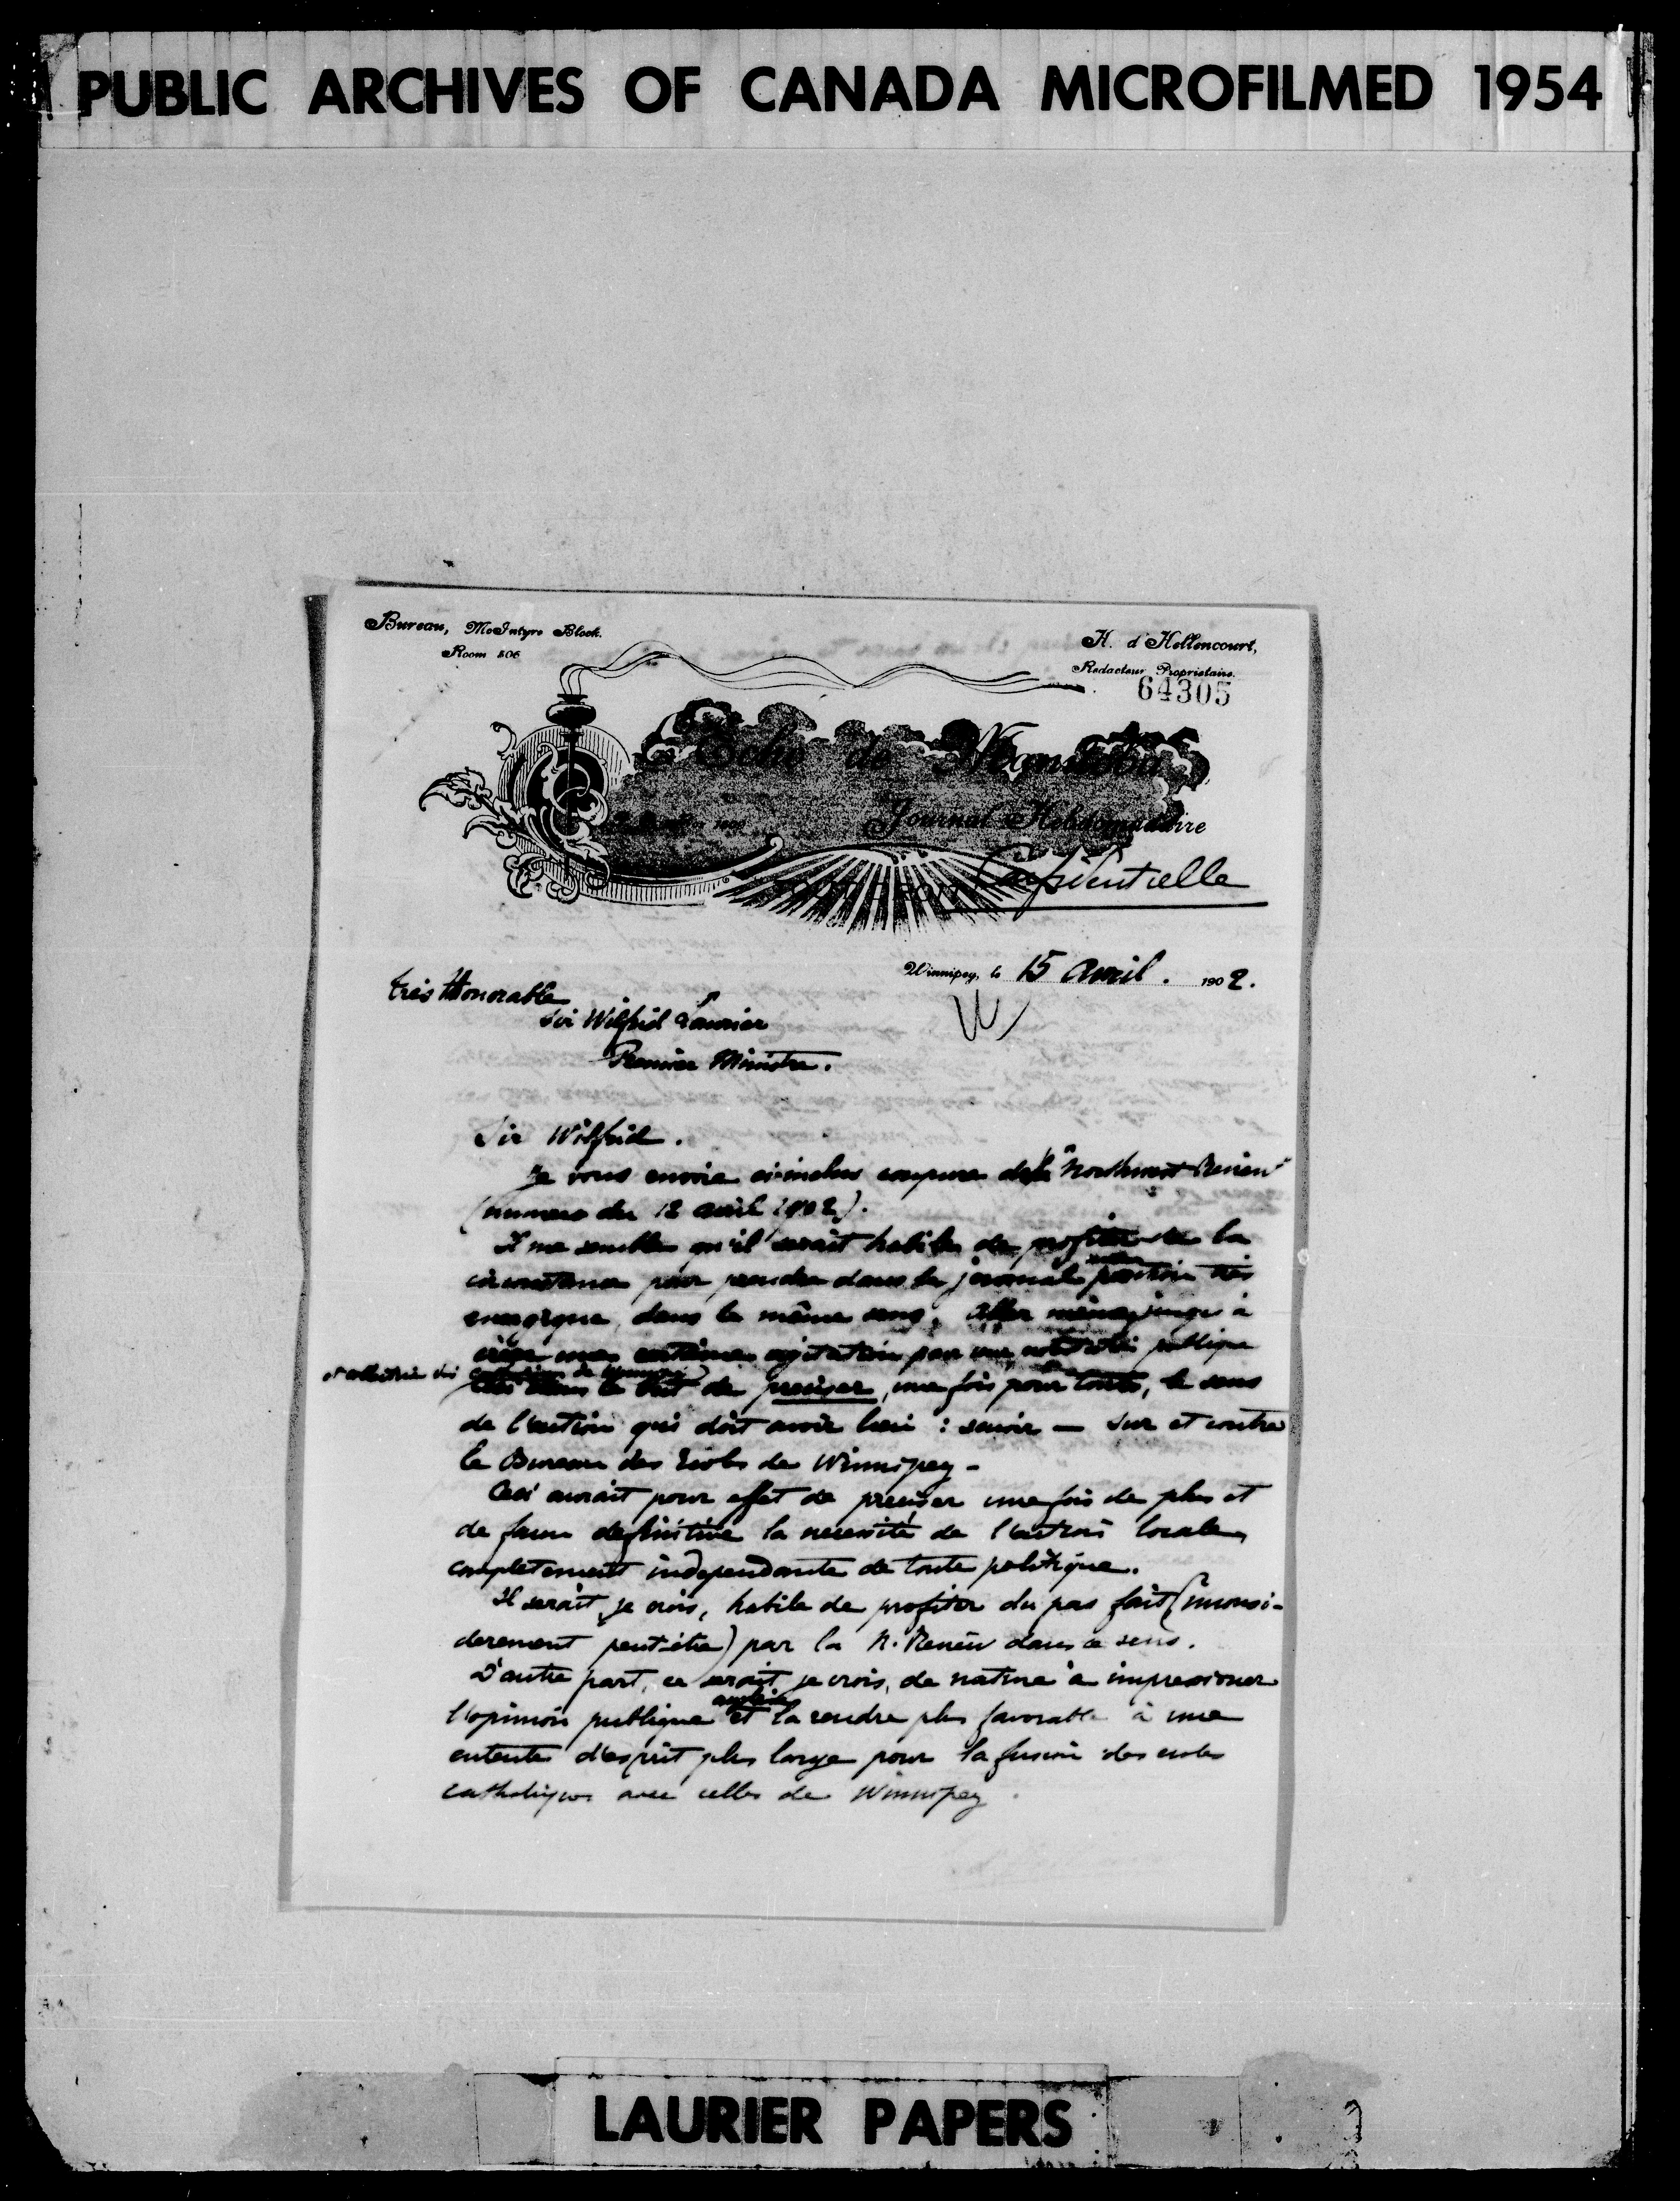 PUBLIC ARCHIVES OF CANADA MICROFILMED 1954
Bureau, McIntyre Block.
Room 506
H. d'Hellencourt,
Redacteur Proprietaire.
64305
Echo de Manitoba
Journal Hebdomadaire
Confidentielle
Winnipeg, le 15 avril. 1902.
très Honorable
Sir Wilfrid Laurier
Premier Ministre.
Sir Wilfrid.
Je vous envoie ci-inclus coupure de la "Northwest Review"
(numero du 12 avril 1902).
Il me semble qu'il serait habile de profiter de la
circonstance pour prendre dans le journal position très
energique, dans le même sens. Aller même jusqu'à
créer une certaine agitation par une publique
dans le but de preciser, une fois pour toute, le sens
de l'action qui doit avoir lieu : savoir — sur et contre
le Bureau des Ecoles de Winnipeg -
Ceci aurait pour effet de preciser une fois de plus et
de facon definitive la necessité de l'action locale,
completement independante de toute politique.
Il serait, je crois, habile de profiter du pas fait (inconsi-
derement peut-être) par la N. Review dans ce sens.
D'autre part, ce serait, je crois, de nature à impressioner
l'opinion publique anglaise et la rendre plus favorable à une
entente d'esprit plus large pour la fusion des ecoles
catholiques avec celles de Winnipeg.
LAURIER PAPERS